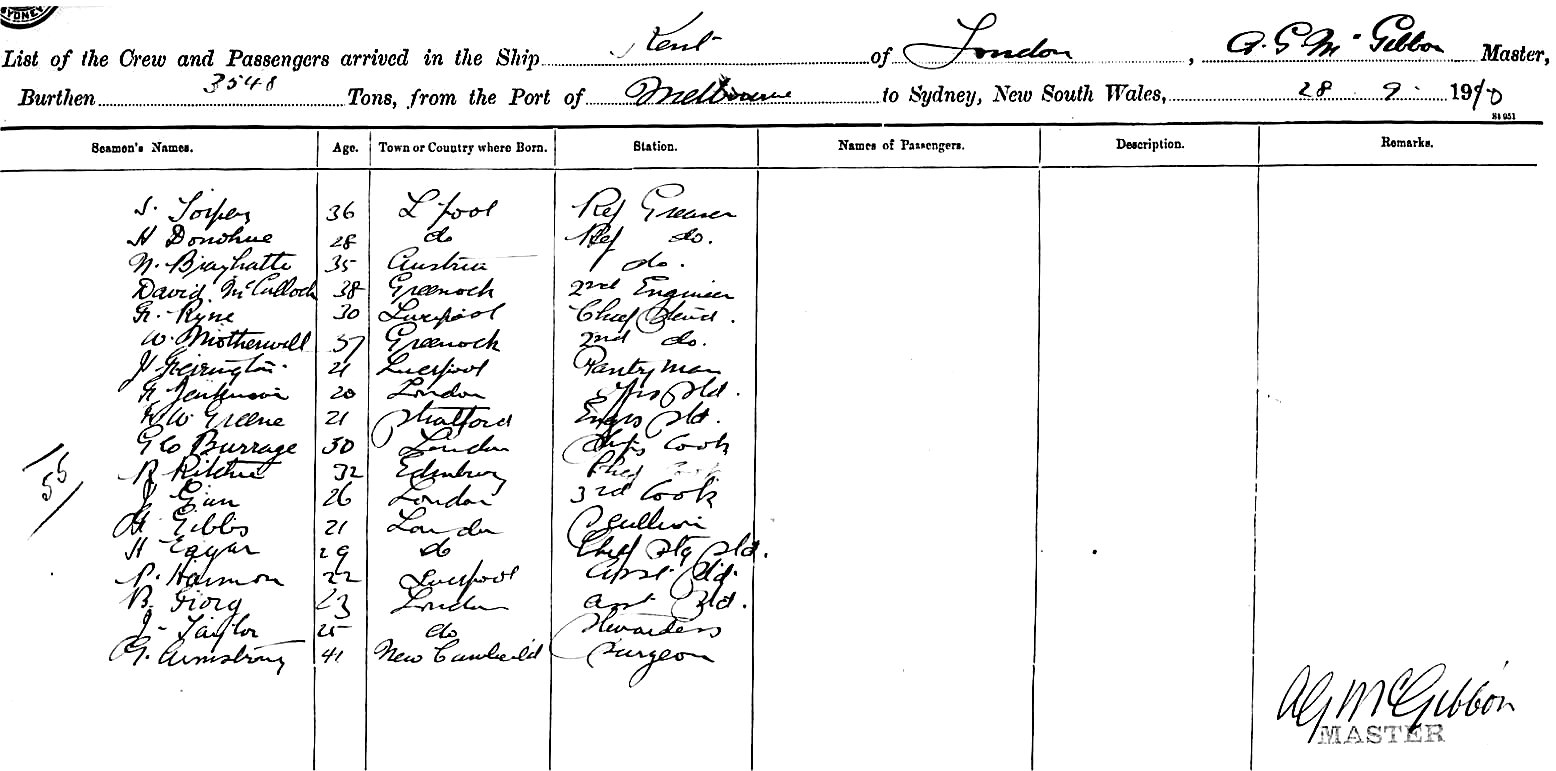 SYDNEY
List of the Crew and Passengers arrived in the Ship Kent of London, A. G. McGibbon Master,
Burthen 3548 Tons, from the Port of Melbourne to Sydney, New South Wales, 28 . 9 . 1910
81051
Seamen's Names. Age. Town or Country where Born. Station. Names of Passengers. Description. Remarks.
S. Torpey 36 L'pool Ref Greaser
H Donohue 28 do Ref do.
N. 35 Austria do.
David McCulloch 38 Greenock 2nd Engineer
G. Ryne 30 Liverpool Chief Stwd.
W. Motherwell 37 Greenock 2nd do.
21 Liverpool Pantryman
Jenkinson 20 London Std.
W Greene 21 Stratford Engrs Std.
Geo Burrage 30 London Ships Cook
R Ritchie 32 Chief Cook
J 26 London 3rd Cook
G. Gibbs 21 London Scullion
H Edgar 29 do Chief Std.
P. Harmon 22 Liverpool Asst Std.
B. Giorg 23 London Asst Std.
J. Taylor 25 do Stwardess
G. Armstrong 41 Surgeon
55
AG McGibbon
MASTER